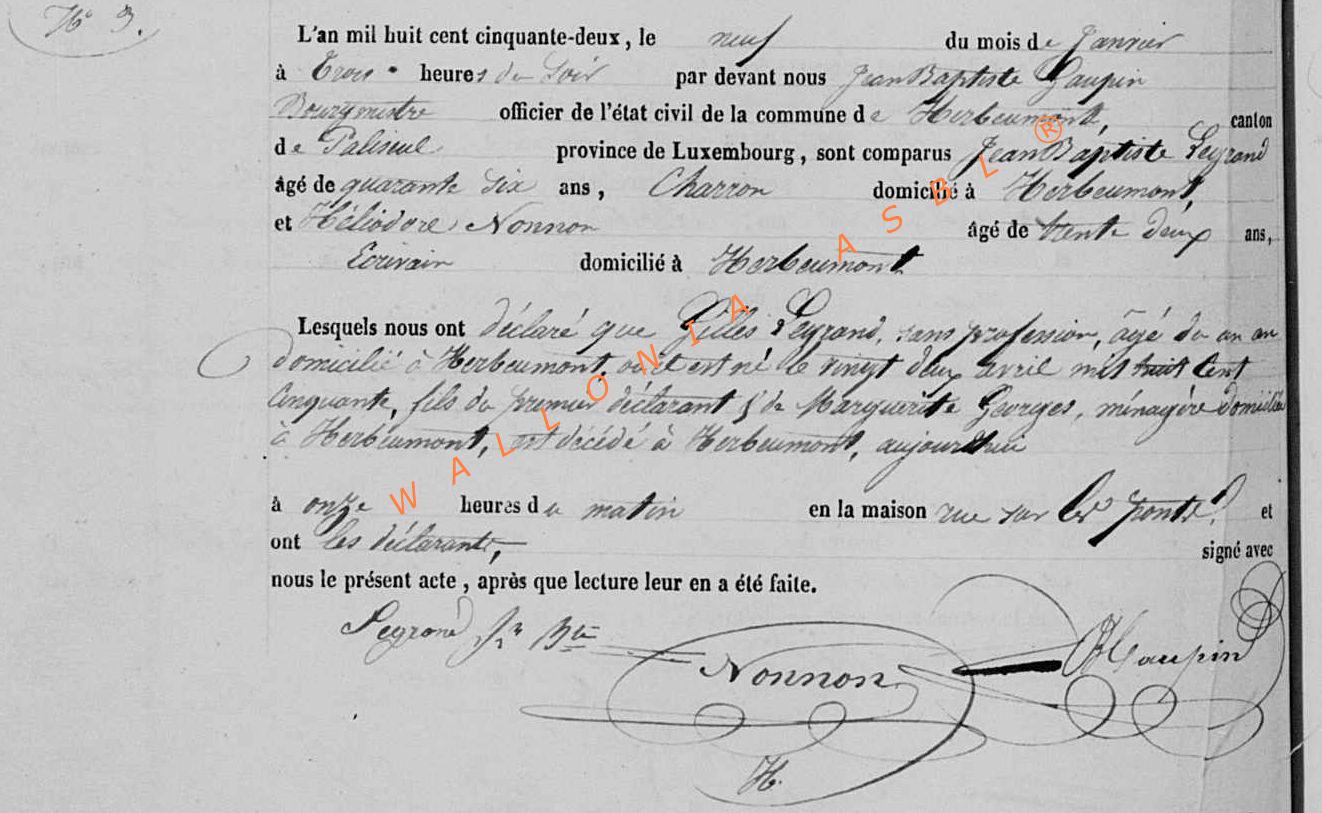 N° 3.
L'an mil huit cent cinquante-deux, le neuf du mois de Janvier
à Trois heures du Soir par devant nous Jean Baptiste Haupin
Bourgmestre officier de l'état civil de la commune de Herbeumont, canton
de Paliseul province de Luxembourg, sont comparus Jean Baptiste Peyrand
âgé de quarante six ans, Charron domicilié à Herbeumont,
et Héliodore Nonnon âgé de trente deux ans,
Ecrivain domicilié à Herbeumont
Lesquels nous ont déclaré que Gilles Peyrand, sans profession, âgé du un an
domicilié à Herbeumont, où il est né le vingt deux avril mil huit Cent
Cinquante, fils du premier déclarant & de Marguerite Georges, ménagère domiciliée
à Herbeumont, est décédé à Herbeumont, aujourdhui
à onze heures du matin en la maison rue sur les ponts. et
ont les déclarants, signé avec
nous le présent acte, après que lecture leur en a été faite.
Jn Bte
Nonnon Haupin
H.
WALLONIA ASBL ®